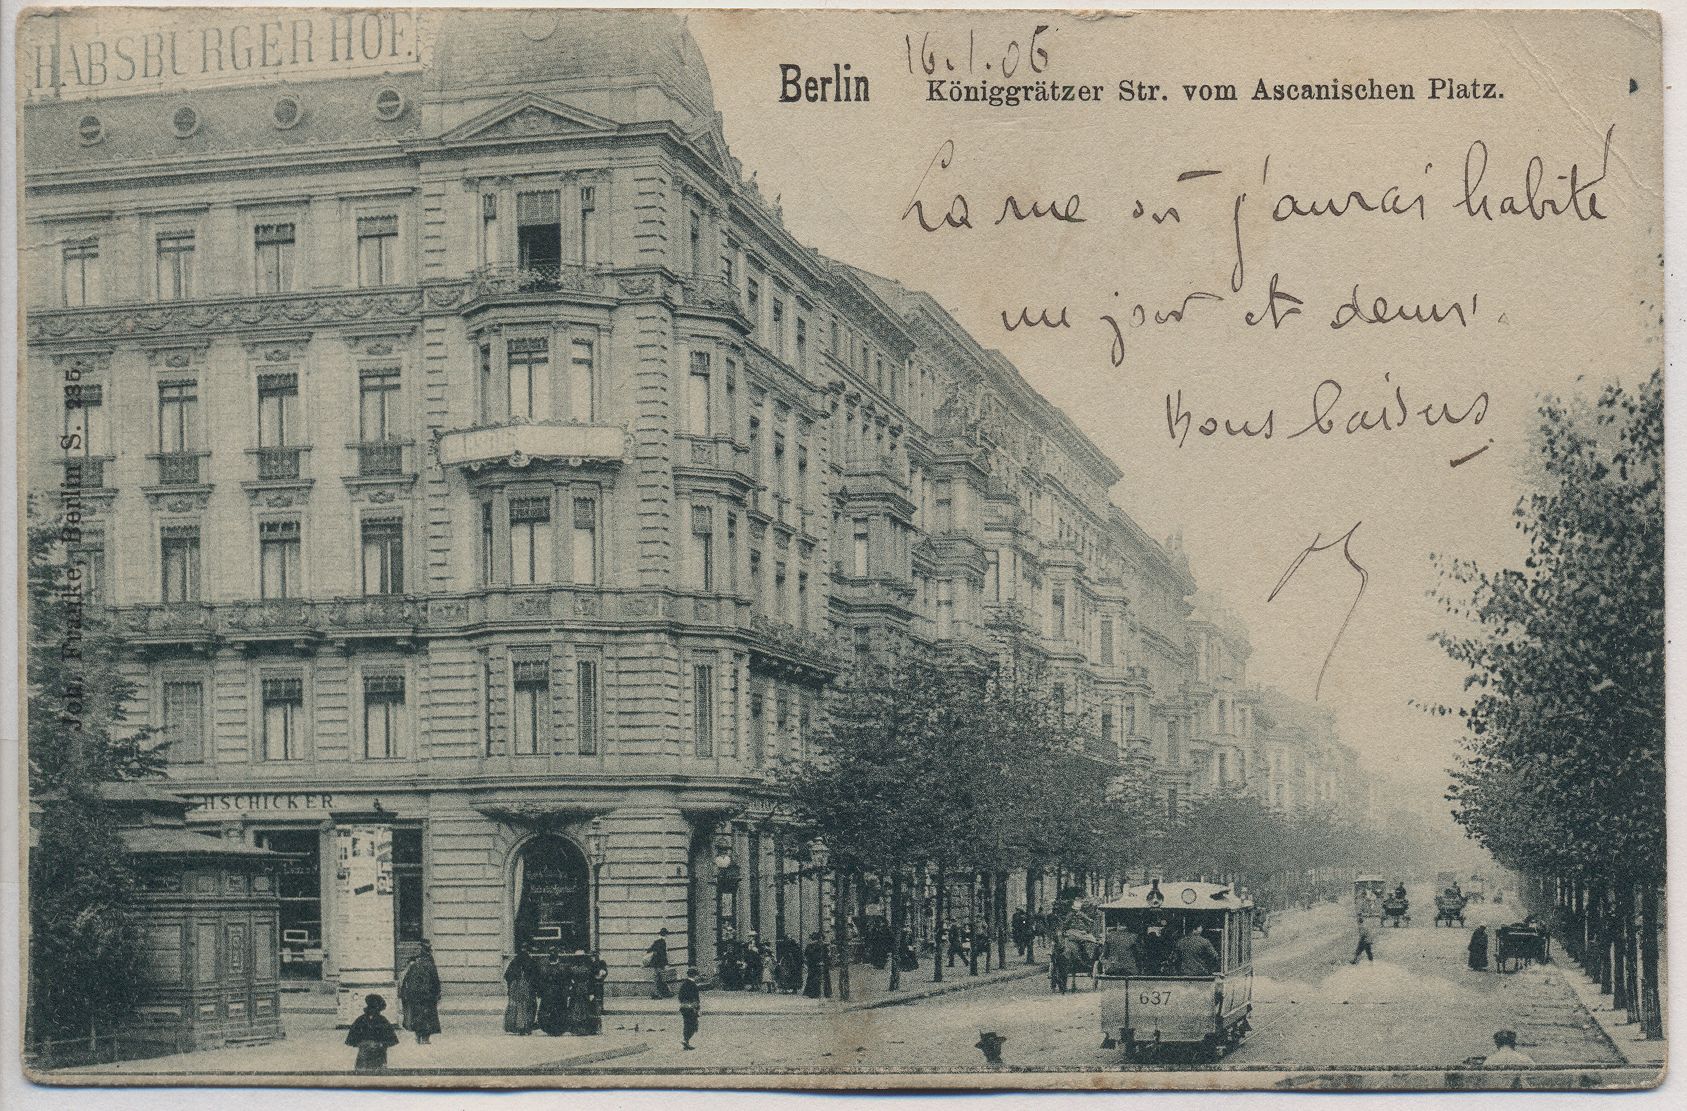 HABSBURGER HOF.
16.1.06
Berlin Königgrätzer Str. vom Ascanischen Platz.
La rue où j'aurai habité
un jour et demi.
Bons baisers
Joh. Frauke, Berlin S. 235.
HSCHICKER.
637